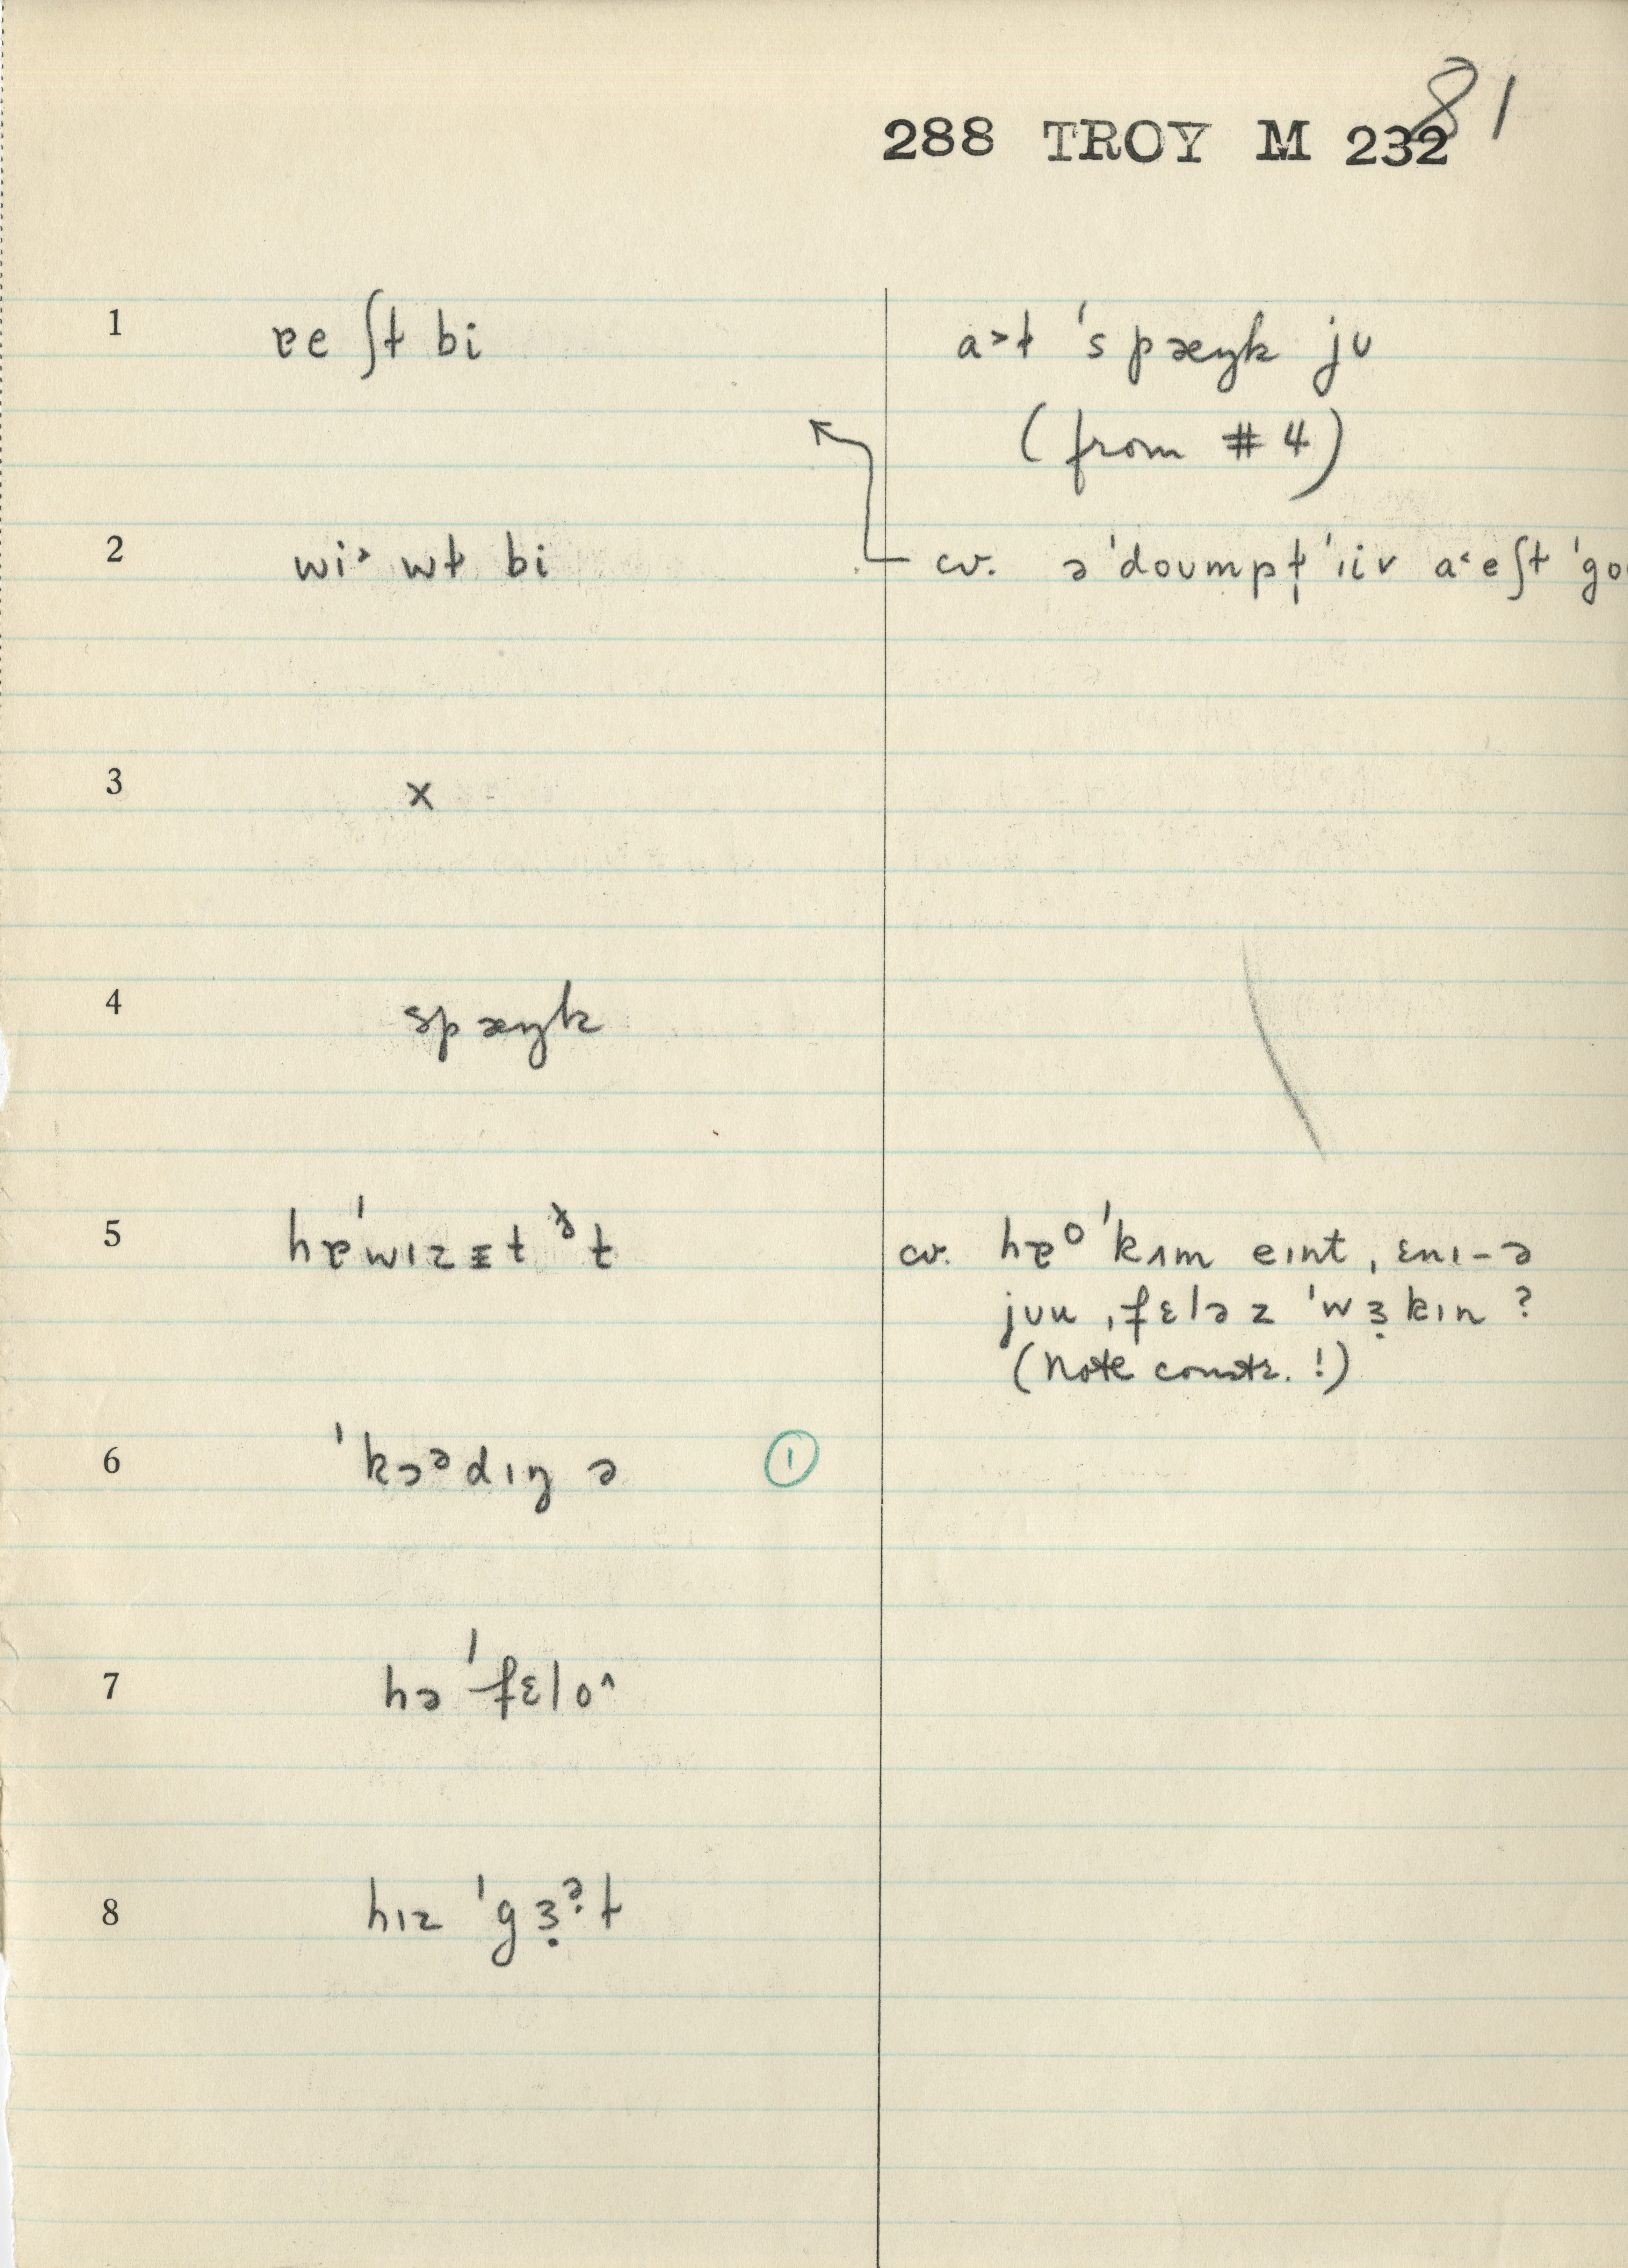 81
288 TROY M 232
1 ɐe ʃt bi a˃ɫ ˈspæŋk jʊ
(from #4)
2 wi˃ wɫ bi cv. ə ˈdoʊmpt ˈɪiv a˂eʃt ˈgo
3 x
4 spæŋk
5 hɐˈwɪzɪt ðt cv. hɐᴼ ˈkʌm eɪnt ˌɛnɪ-ə
jʊu ˌfɛləz ˈwɜkɪn ?
(Note constr. !)
6 ˈkɔᵊdɪŋ ə ①
7 hə ˈfɛlo^
8 hɪz ˈgɜᵊt